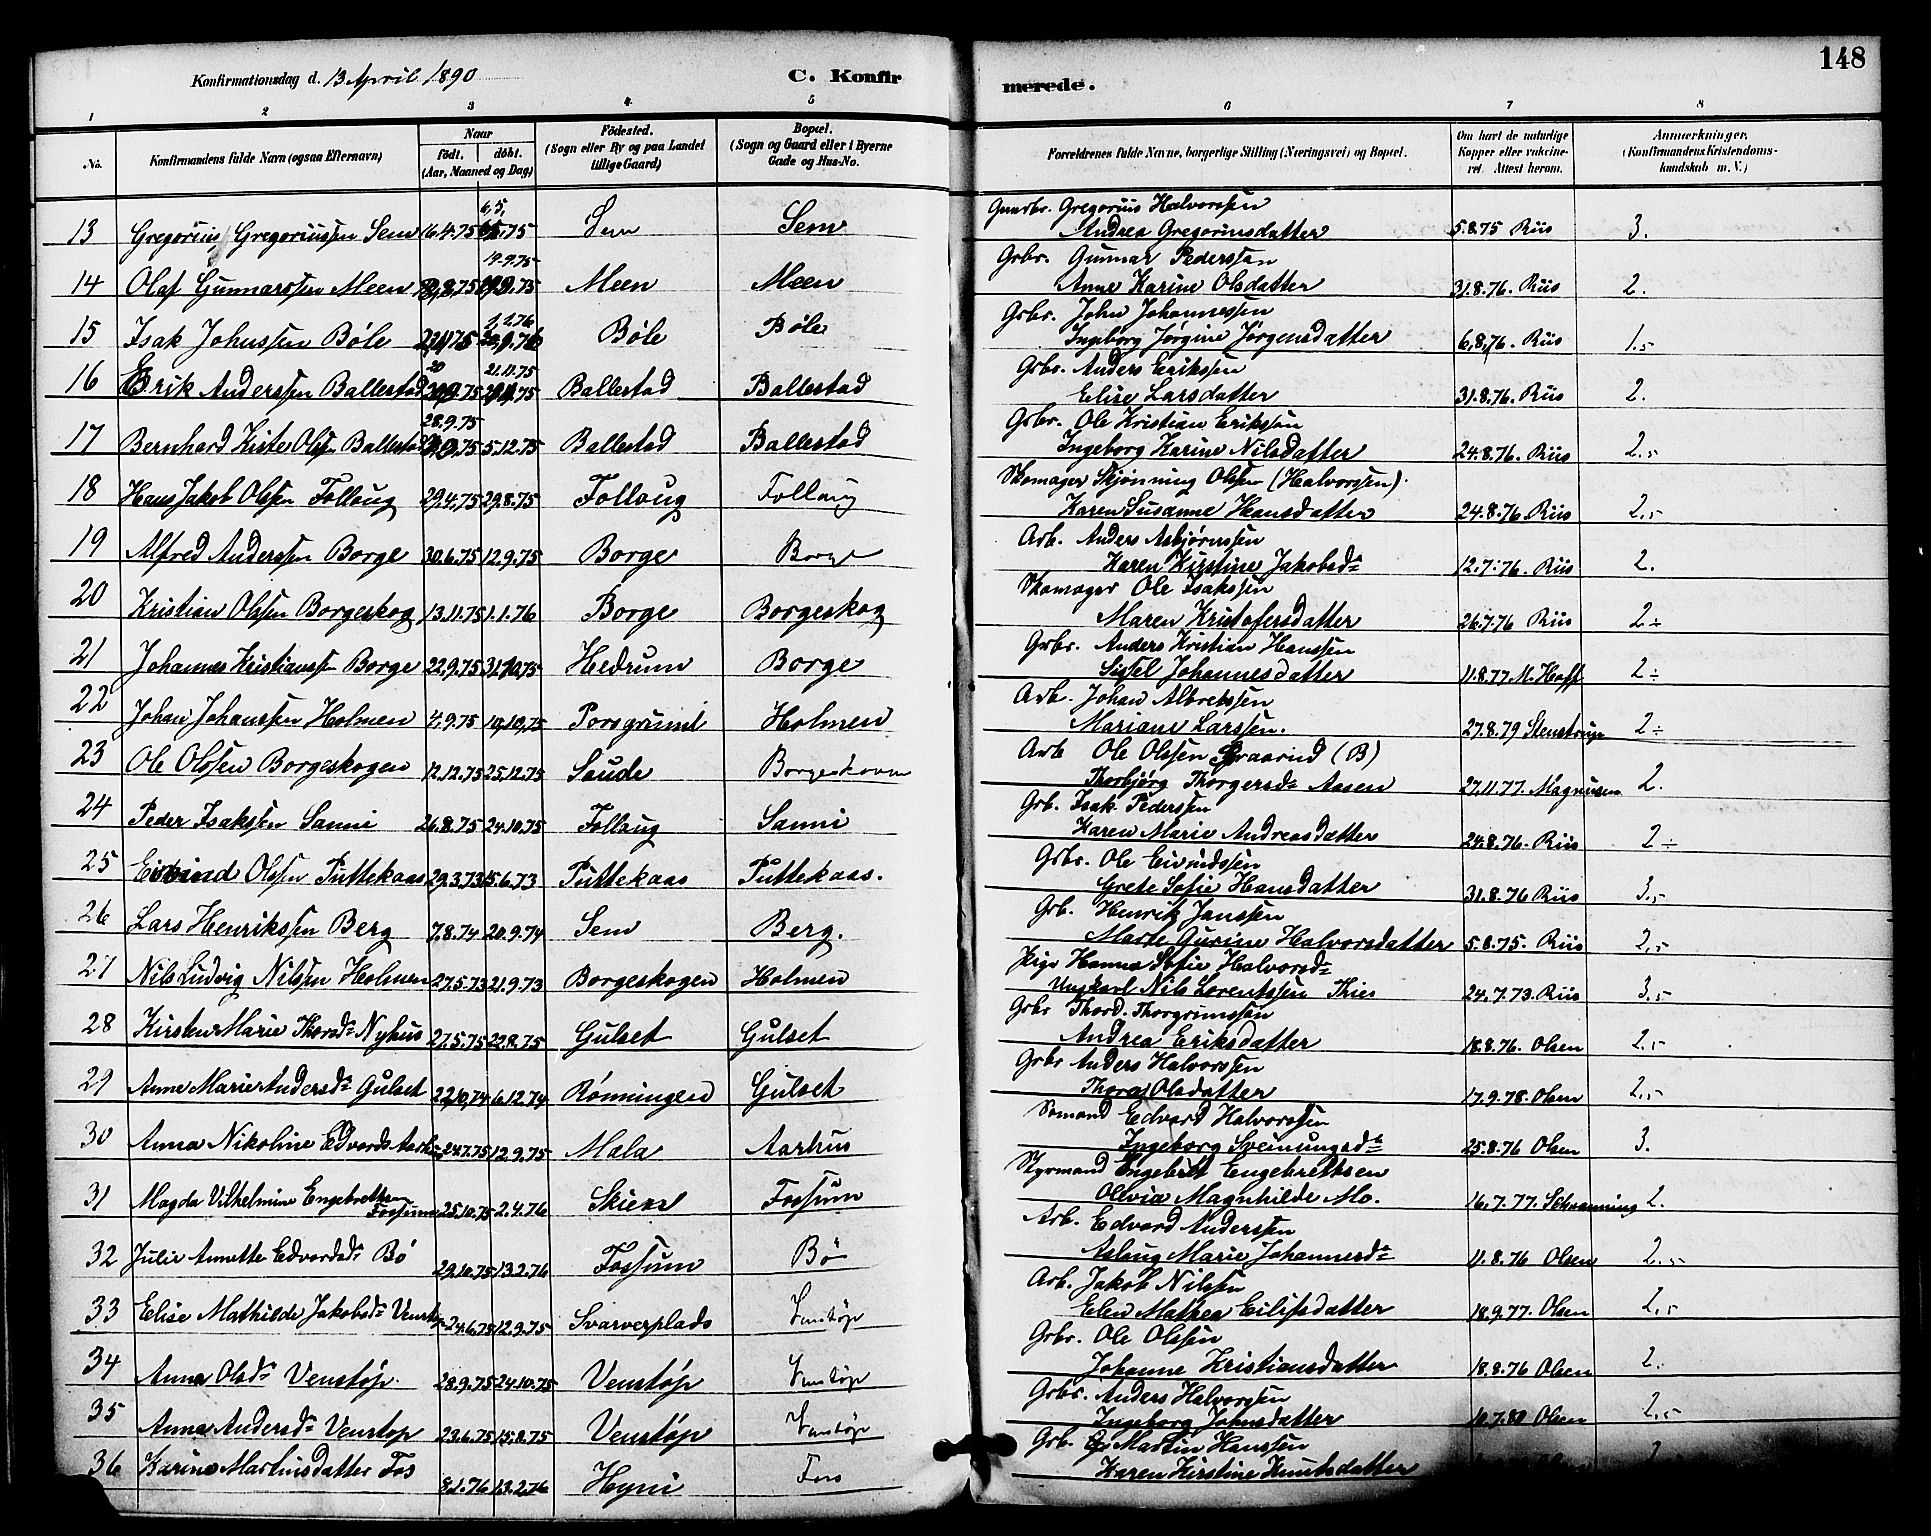 148
Konfirmationsdag d. 13 April 1890 C. Konfirmerede.
1 2 3 4 5 6 7 8
No. Konfirmandens fulde Navn (ogsaa Efternavn) Naar født, døbt, (Aar, Maaned og Dag) Fødested. (Sogn eller By og paa Landet tillige Gaard) Bopæl. (Sogn og Gaard eller i Byerne Gade og Hus-No. Forældrenes fulde Navne, borgerlige Stilling (Næringsvei) og Bopæl. Om havt de naturlige Kopper eller vaccineret. Attest herom. Anmærkninger, (Konfirmandens Kristendomskundskab m. V.)
Gaarbr. Gregorius Halvorssen
13 Gregorius Gregoriussen Sem 16.4.75 6,5,75 Sem Sem Andrea Gregoriusdatter 5.8.75 Riis 3.
Grbr. Gunnar Pederssen
14 Olaf Gunnarssen Meen 8.75 19.9.75 Meen Meen Anne Karine Olsdatter 31.8.76. Riis 2.
Grbr. John Johannessen
15 Isak Johnssen Bøle 75 2.76 Bøle Bøle Ingeborg Jørgine Jørgensdatter 6,8,76. Riis 1.5
Grbr. Anders Erikssen
16 Erik Anderssen Ballestad 20 9.75 21.11.75 Ballestad Ballestad Elise Larsdatter 31.8.76. Riis 2.
Grbr. Ole Kristian Erikssen
17 Bernhard Kiste Olssen Ballestad 28.9.75 5.12.75 Ballestad Ballestad Ingeborg Karine Nilsdatter 24.8.76. Riis 2.5
Skomager Skjønning Olssen (Halvorssen).
18 Hans Jakob Olssen Follaug 29.4.75 29.8.75 Follaug Follaug Karen Susanne Hansdatter 24.8.76 Riis 2.5
Arb. Anders Asbjørnssen
19 Alfred Anderssen Borge 30.6.75 12.9.75 Borge Borge Karen Kirstine Jakobsd. 12.7.76. Riis 2.
Skomager Ole Isakssen
20 Kristian Olssen Borgeskog 13.11.75 1.1.76 Borge Borgeskog Maren Kristofersdatter 26.7.76 Riis 2÷
Grbr. Anders Kristian Hanssen
21 Johannes Kristianssen Borge 22.9.75 31.10.75 Hedrum Borge Sissel Johannesdatter 11.8.77. M. Hoff 2÷
Arb. Johan Albretssen
22 Johan Johanssen Holmen 4.9.75 10,10,75 Porsgrund Holmen Mariane Larssen. 27.8.79 Stenstrup 2÷
Arb Ole Olssen Graarud (B)
23 Ole Olssen Borgeskogen 12.12.75 25.12.75 Saude Borgeskoven Thorbjørg Thorgersd. Aasen 27.11.77. Magnusen 2.
Grb. Isak Pederssen
24 Peder Isakssen Sanni 26.8.75 24.10.75 Follaug Sanni Karen Marie Andreasdatter 24.8.76. Riis 2÷
Grbr. Ole Eivindssen
25 Eivind Olssen Puttekaas 29.3.73 15.6.73 Puttekaas Puttekaas. Grete Sofie Hansdatter 31.8.76 Riis 3.5
Grb. Henrik Janssen
26 Lars Henrikssen Berg 7.8.74 20.9.74 Sem Berg. Marte Gurine Halvorsdatter 5.8.75. Riis 2.5
Pige Hanna Sofie Halvorsd.
27 Nils Ludvig Nilssen Holmen 27.5.73 21.9.73 Borgeskogen Holmen Ungkarl Nils Lorentssen Kries 24.7.73. Riis 3.5
Grbr Thord Thorgrimssen
28 Kirsten Marie Thorsd. Nyhus 27.5.75 22.8.75 Gulset Gulset Andrea Eriksdatter 18.8.76. Olsen 2.5
Grbr Anders Halvorssen
29 Anne Marie Andersd. Gulset 22,10,74 6.12.74 Rønningen Gulset Thora Olsdatter 17.9.78. Olsen 2.5
Sømand Edvard Halvorssen
30 Anna Nikoline Edvards 24.7.75 12.9.75 Mala Aarhus Ingeborg Sveinungsd. 25.8.76 Olsen 3.
Styrmand Engebret Engebretksen
31 Magda Vilhelmine Engebrethsen Fossum 25.10.75 2.4.76 Skien Fossum Olivia Magnhilde Mo. 16.7.77. Schwanning 2.
Arb. Edvard Anderssen
32 Julie Annette Edvardsd. Bø 29.10.75 13.2.76 Fossum Bø Aslaug Marie Johannesd. 11.8.76 Olsen 2.5
Arb. Jakob Nilssen
33 Elise Mathilde Jakobsd. Venstøp 24.6.75 12.9.75 Svarverplads Venstøp Elen Mathea Eilifsdatter 18.9.77. Olsen 2.5
Grbr. Ole Olssen
34 Anna Olsd. Venstøp. 28.9.75 24.10.75 Venstøp Venstøp Johanne Kristiansdatter 18.8.76 Olsen 2.
Grbr. Anders Halvorssen
35 Anna Andersd. Venstøp 23.6.75 15.8.75 Venstøp Venstøp Ingeborg Johnsdatter 10.7.80 Olsen 2.5
Grb. Martin Hanssen
36 Karine Martinsdatter Fos 8.1.76 13.2.76 Hyni Foss Karen Kirstine Knutsdatter